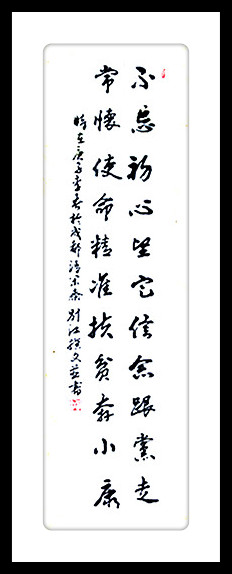 不忘初心坚定信念跟党走
常怀使命精准扶贫奔小康
时在庚子季春於成都清禾斋刘江撰文并书